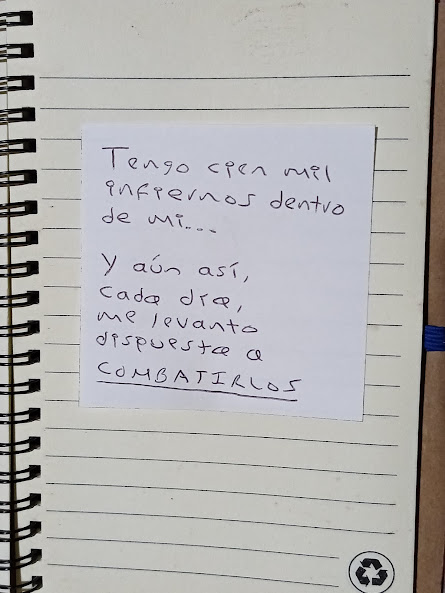 Tengo cien mil
infiernos dentro
de mi...
Y aún así,
cada día,
me levanto
dispuesta a
COMBATIRLOS